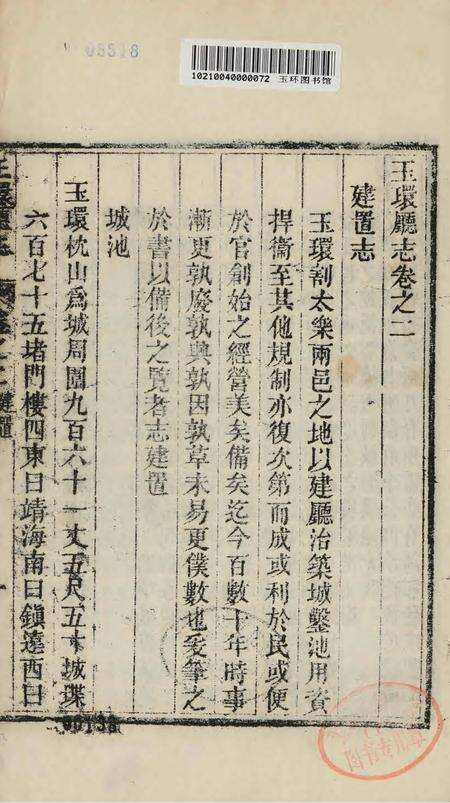 08818
10210040000072 玉环图书馆
玉環廳志卷之二
建置志
玉環割太樂兩邑之地以建廳治築城鑿池用資
捍衞至其他規制亦復次第而成或利於民或便
於官創始之經營美矣備矣迄今百數十年時事
漸更孰廢孰興孰因孰革未易更僕數也爰筆之
於書以備後之覽者志建置
城池
玉環枕山爲城周圍九百六十一丈五尺五寸城堞
六百七十五堵門樓四東曰靖海南曰鎮遠西曰
建置